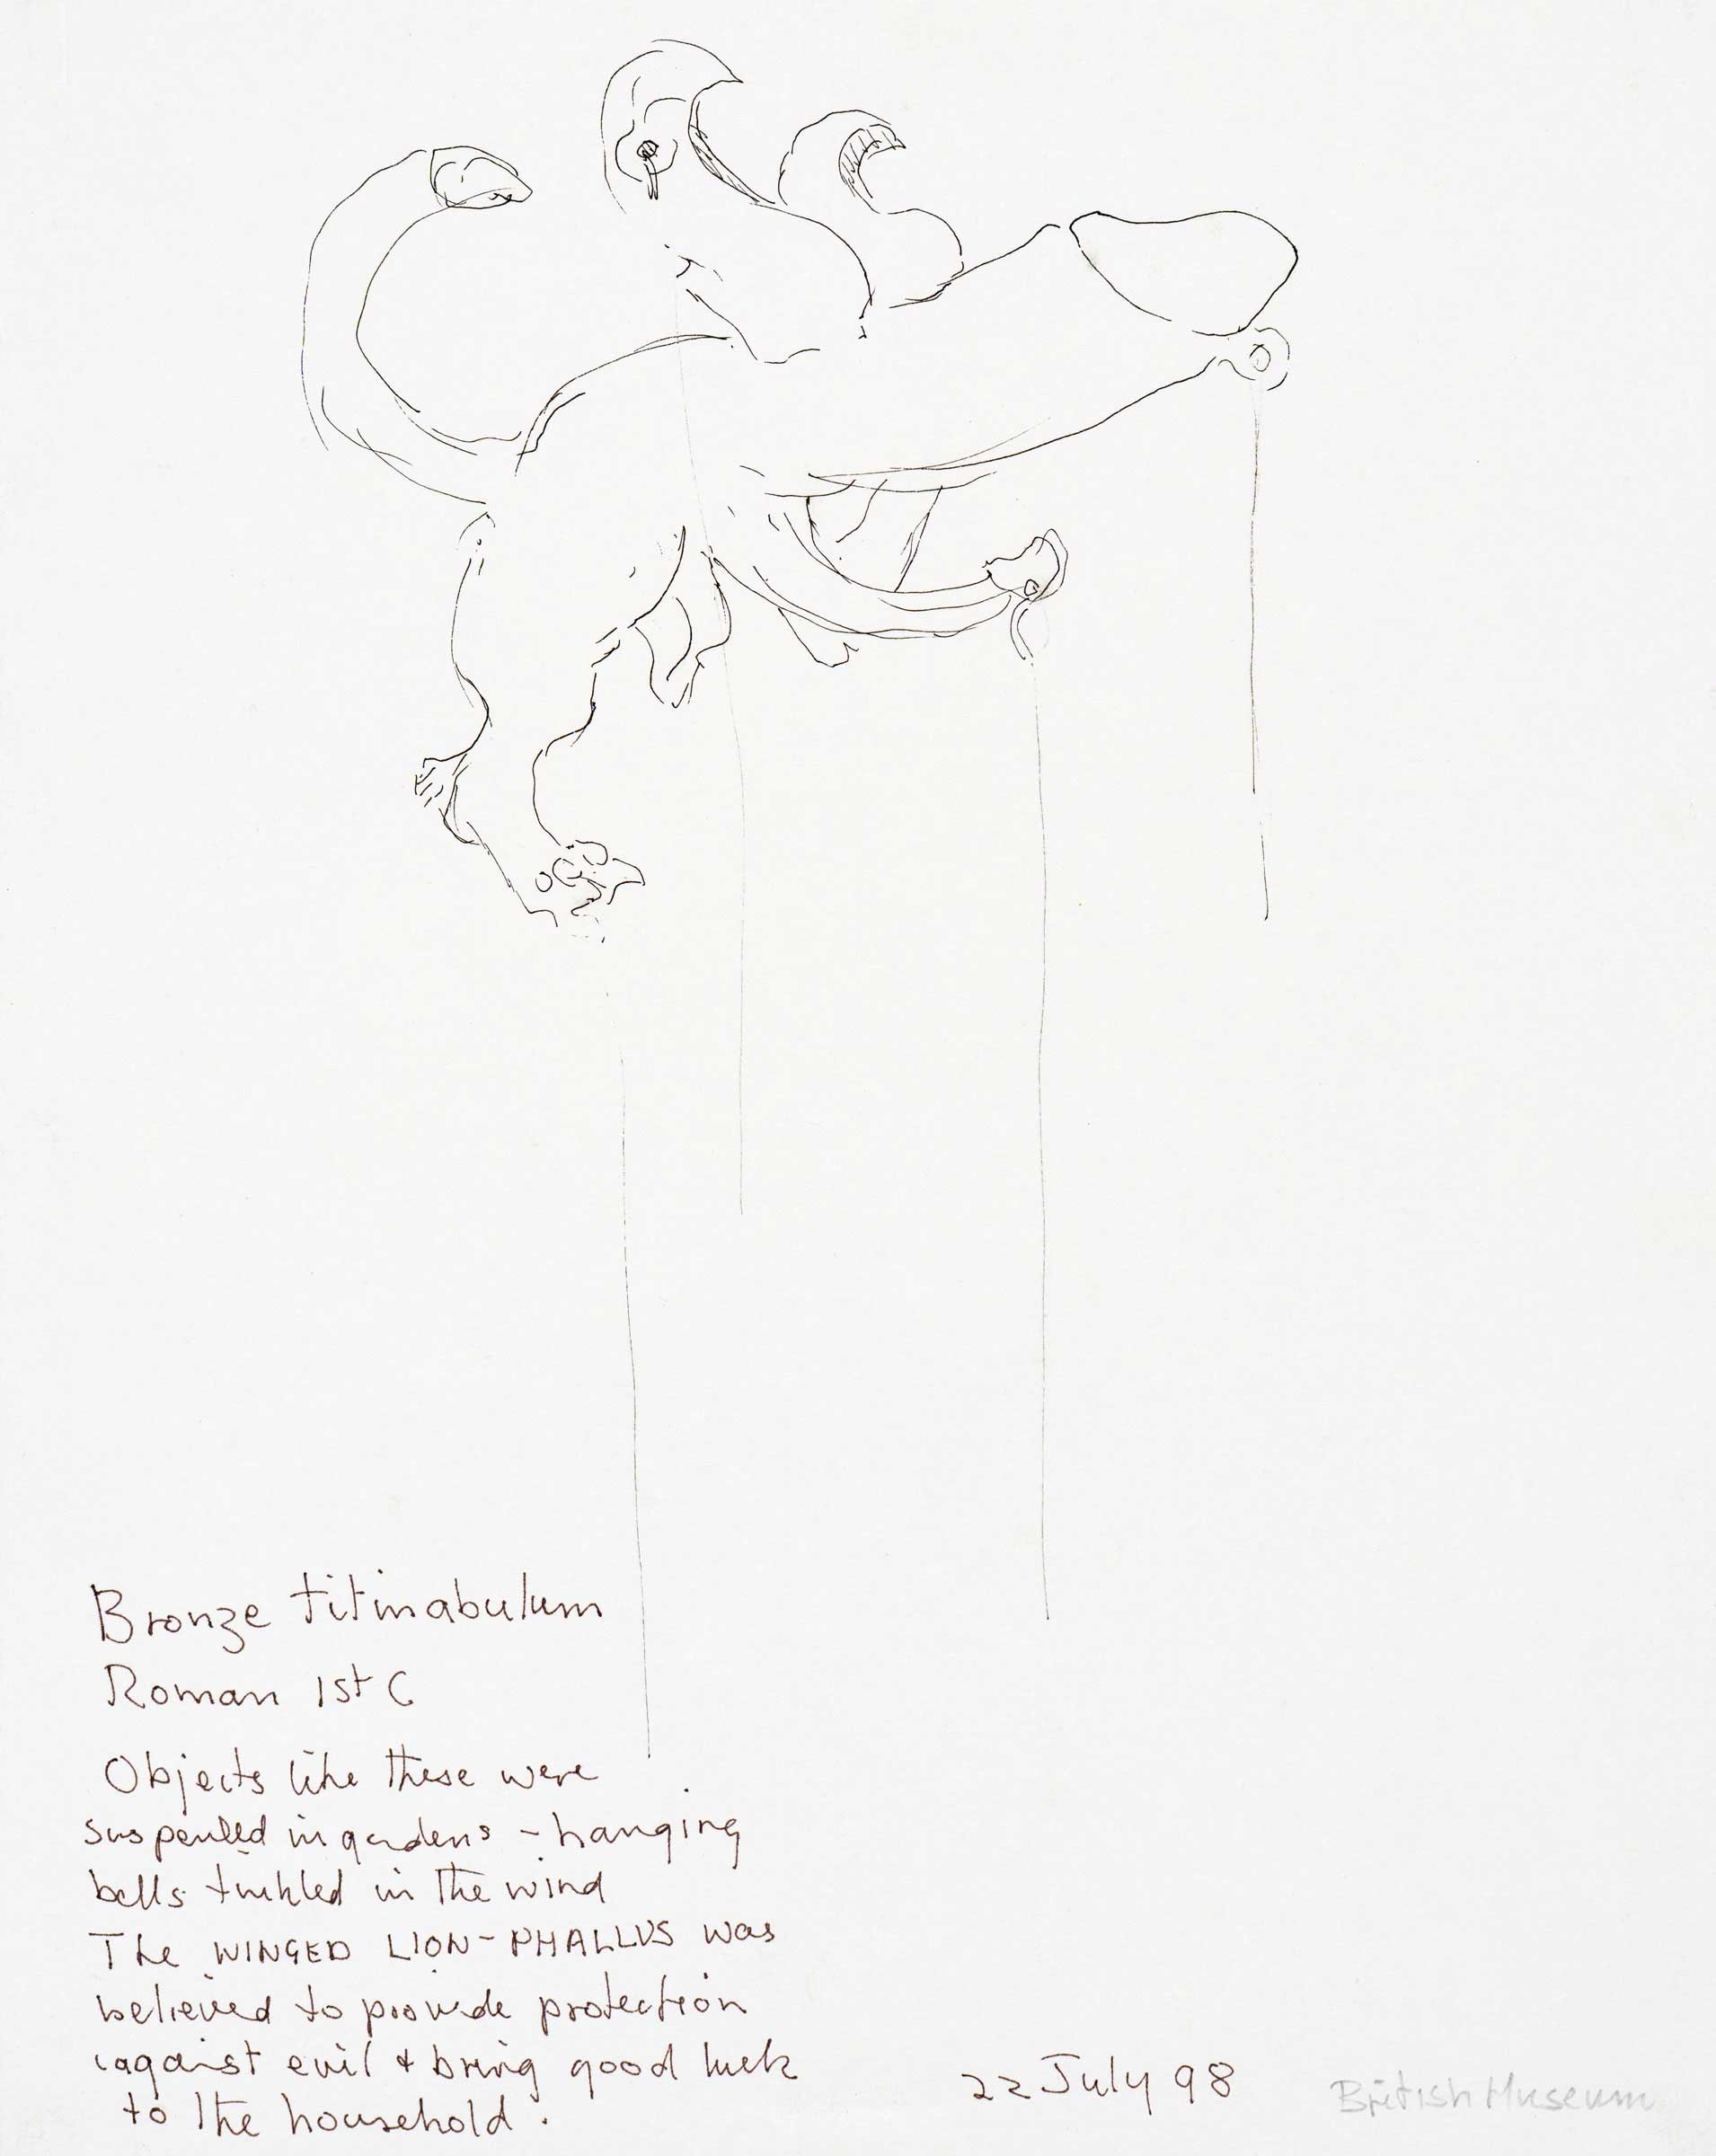 Bronze titinabulum
Roman 1st C
Objects like these were
suspended in gardens - hanging
bells tinkled in the wind
The WINGED LION-PHALLUS was
believed to provide protection
against evil + bring good luck
to the household.
22 July 98
British Museum